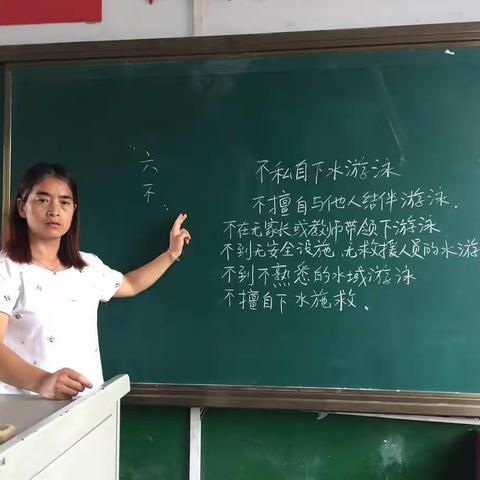 “六不”
不私自下水游泳
不擅自与他人结伴游泳.
不在无家长或教师带领下游泳
不到无安全设施,无救援人员的水游
不到不熟悉的水域游泳
不擅自下水施救.